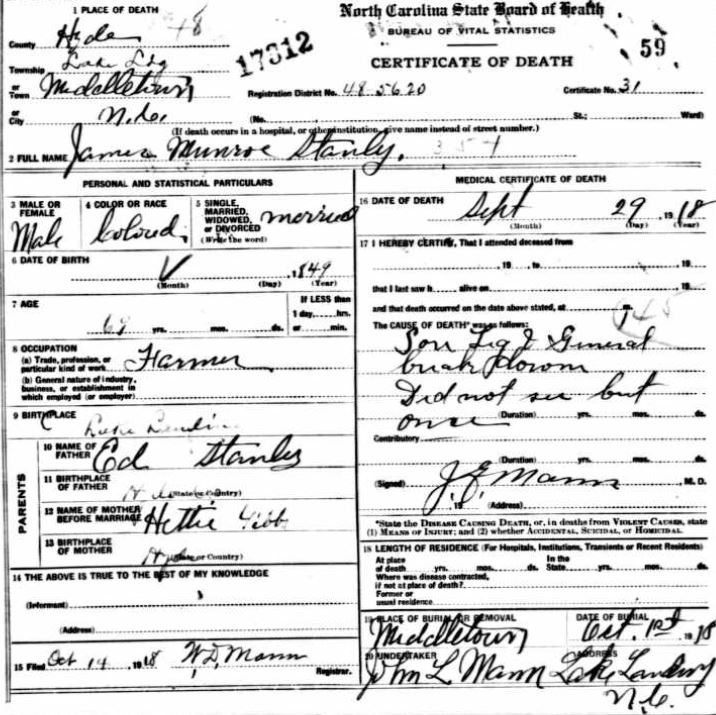 1 PLACE OF DEATH
North Carolina State Board of Health
BUREAU OF VITAL STATISTICS
CERTIFICATE OF DEATH
59
17312
County Hyde 48
Township Lake Ldg
or Town Middletown
Registration District No. 48-5620 Certificate No. 31
or City N.C. (No. St.; Ward)
(If death occurs in a hospital, or other institution, give name instead of street number.)
2 FULL NAME James Munroe Stanly,
PERSONAL AND STATISTICAL PARTICULARS
3 MALE OR FEMALE
Male
4 COLOR OR RACE
Colored.
5 SINGLE, MARRIED, WIDOWED, or DIVORCED
(Write the word)
married
6 DATE OF BIRTH
, 1849
(Month) (Day) (Year)
7 AGE
69 yrs. mos. ds.
If LESS than
1 day, hrs.
or min.
8 OCCUPATION
(a) Trade, profession, or
particular kind of work Farmer
(b) General nature of industry,
business, or establishment in
which employed (or employer)
9 BIRTHPLACE
Lake
PARENTS
10 NAME OF FATHER Ed Stanly
11 BIRTHPLACE OF FATHER
(State or Country)
12 NAME OF MOTHER BEFORE MARRIAGE Hettie Gibbs
13 BIRTHPLACE OF MOTHER
(State or Country)
14 THE ABOVE IS TRUE TO THE BEST OF MY KNOWLEDGE
(Informant)
(Address)
15 Filed Oct 14, 1918 W.D. Mann
Registrar.
MEDICAL CERTIFICATE OF DEATH
16 DATE OF DEATH
Sept 29 1918
(Month) (Day) (Year)
17 I HEREBY CERTIFY, That I attended deceased from
, 19 , to 19
that I last saw h alive on 19
and that death occurred on the date above stated, at m.
The CAUSE OF DEATH* was as follows:
Sore Leg & General
break down
Did not see but
once (Duration) yrs. mos. ds.
Contributory
(Duration) yrs. mos. ds.
(Signed) J.E. Mann, M.D.
, 19 (Address)
*State the DISEASE CAUSING DEATH, or, in deaths from VIOLENT CAUSES, state
(1) MEANS OF INJURY; and (2) whether ACCIDENTAL, SUICIDAL, OR HOMICIDAL.
18 LENGTH OF RESIDENCE (For Hospitals, Institutions, Transients or Recent Residents)
At place In the
of death yrs. mos. ds. State yrs. mos. ds.
Where was disease contracted,
if not at place of death?
Former or
usual residence
19 PLACE OF BURIAL OR REMOVAL
Middletown
DATE OF BURIAL
Oct. 1st 1918
20 UNDERTAKER
John L Mann
ADDRESS
Lake Landing
N.C.